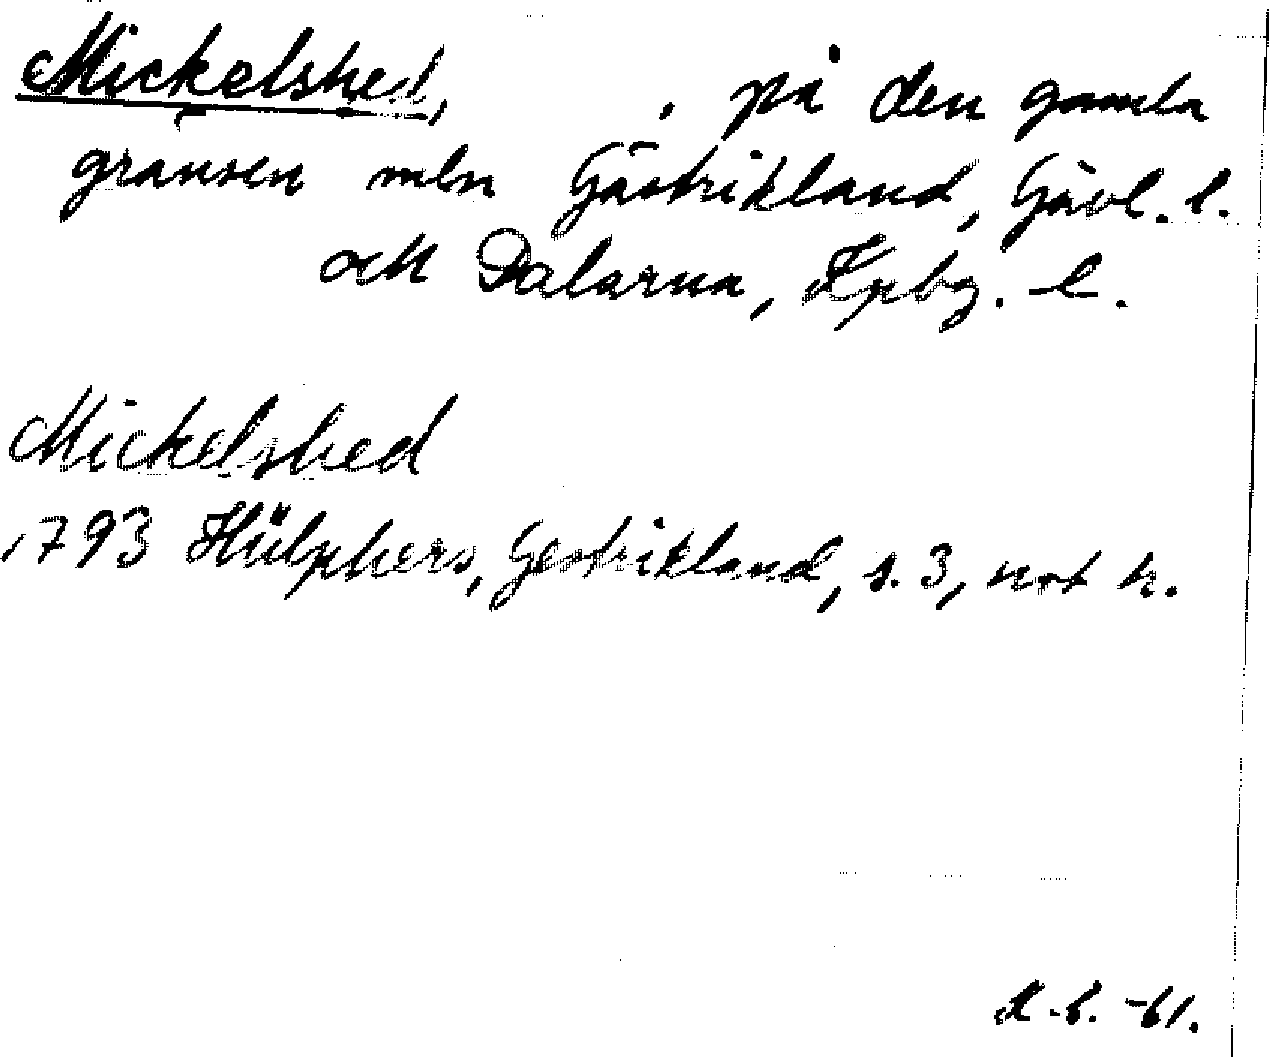 Mickelshed, . på den gamla
gränsen mln Gästrikland, Gävl. l.
och Dalarna, Kpbg. l.
Mickelshed
1793 Hülphers, Gestrikland, s. 3, not h.
-61.